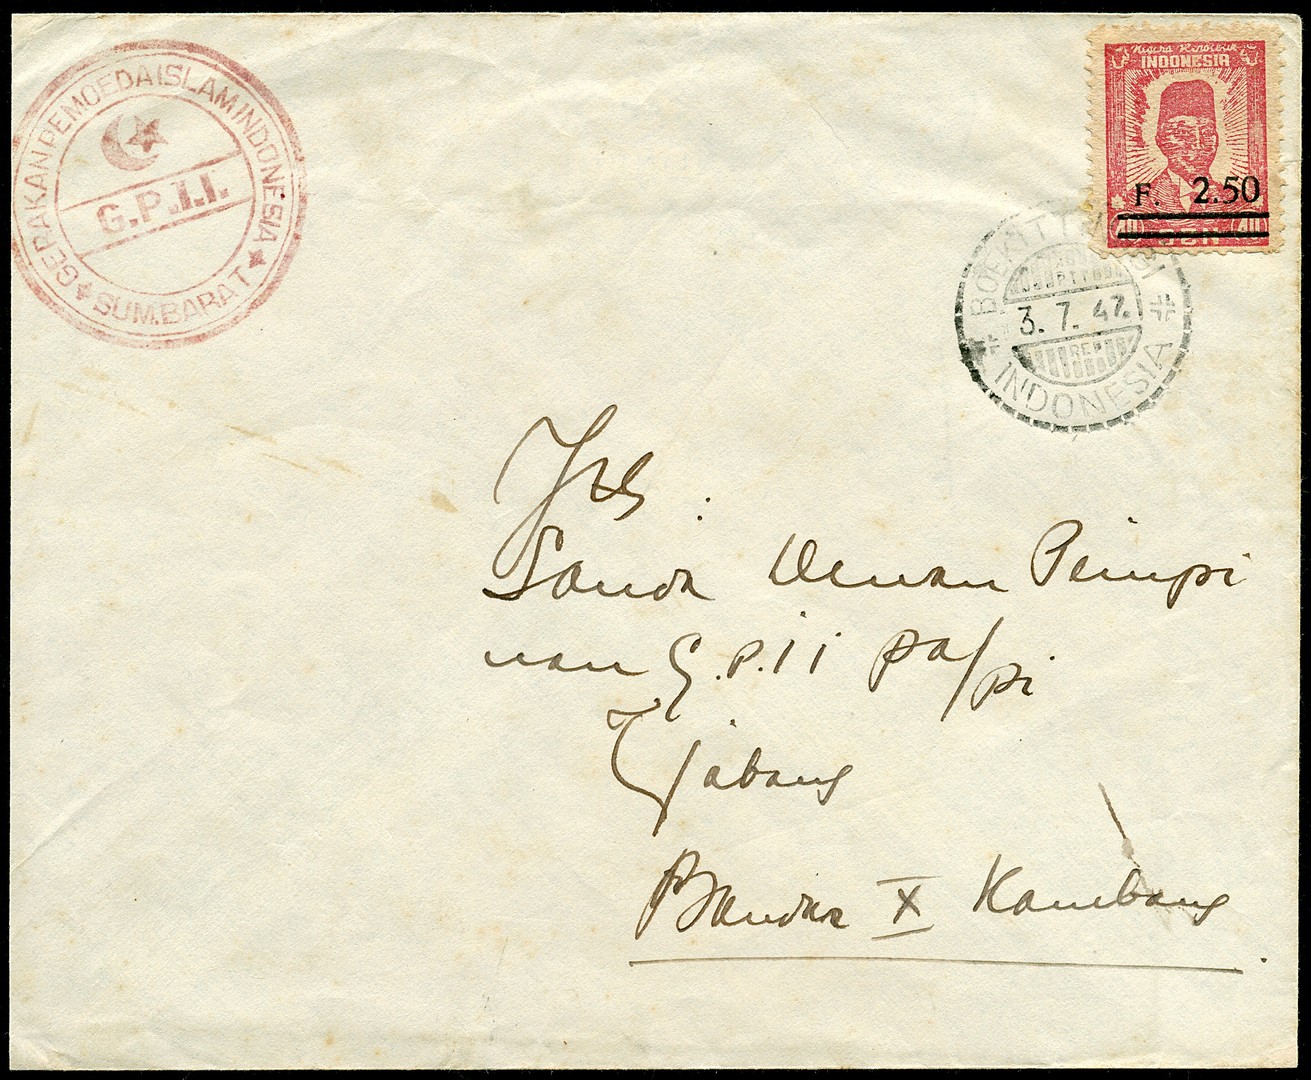 GERAKAN PEMOEDA ISLAM INDONESIA
G.P.I.I.
SUM.BARAT
Negara Repoeblik
INDONESIA
F. 2.50
40 SEN 40
BOEKITTINGGI
PTT
3. 7. 47.
REP
INDONESIA
Jth :
Sauda Dewan Pimpi
nan G.P.ii pa/pi
Tjabang
Bandar X Kambang